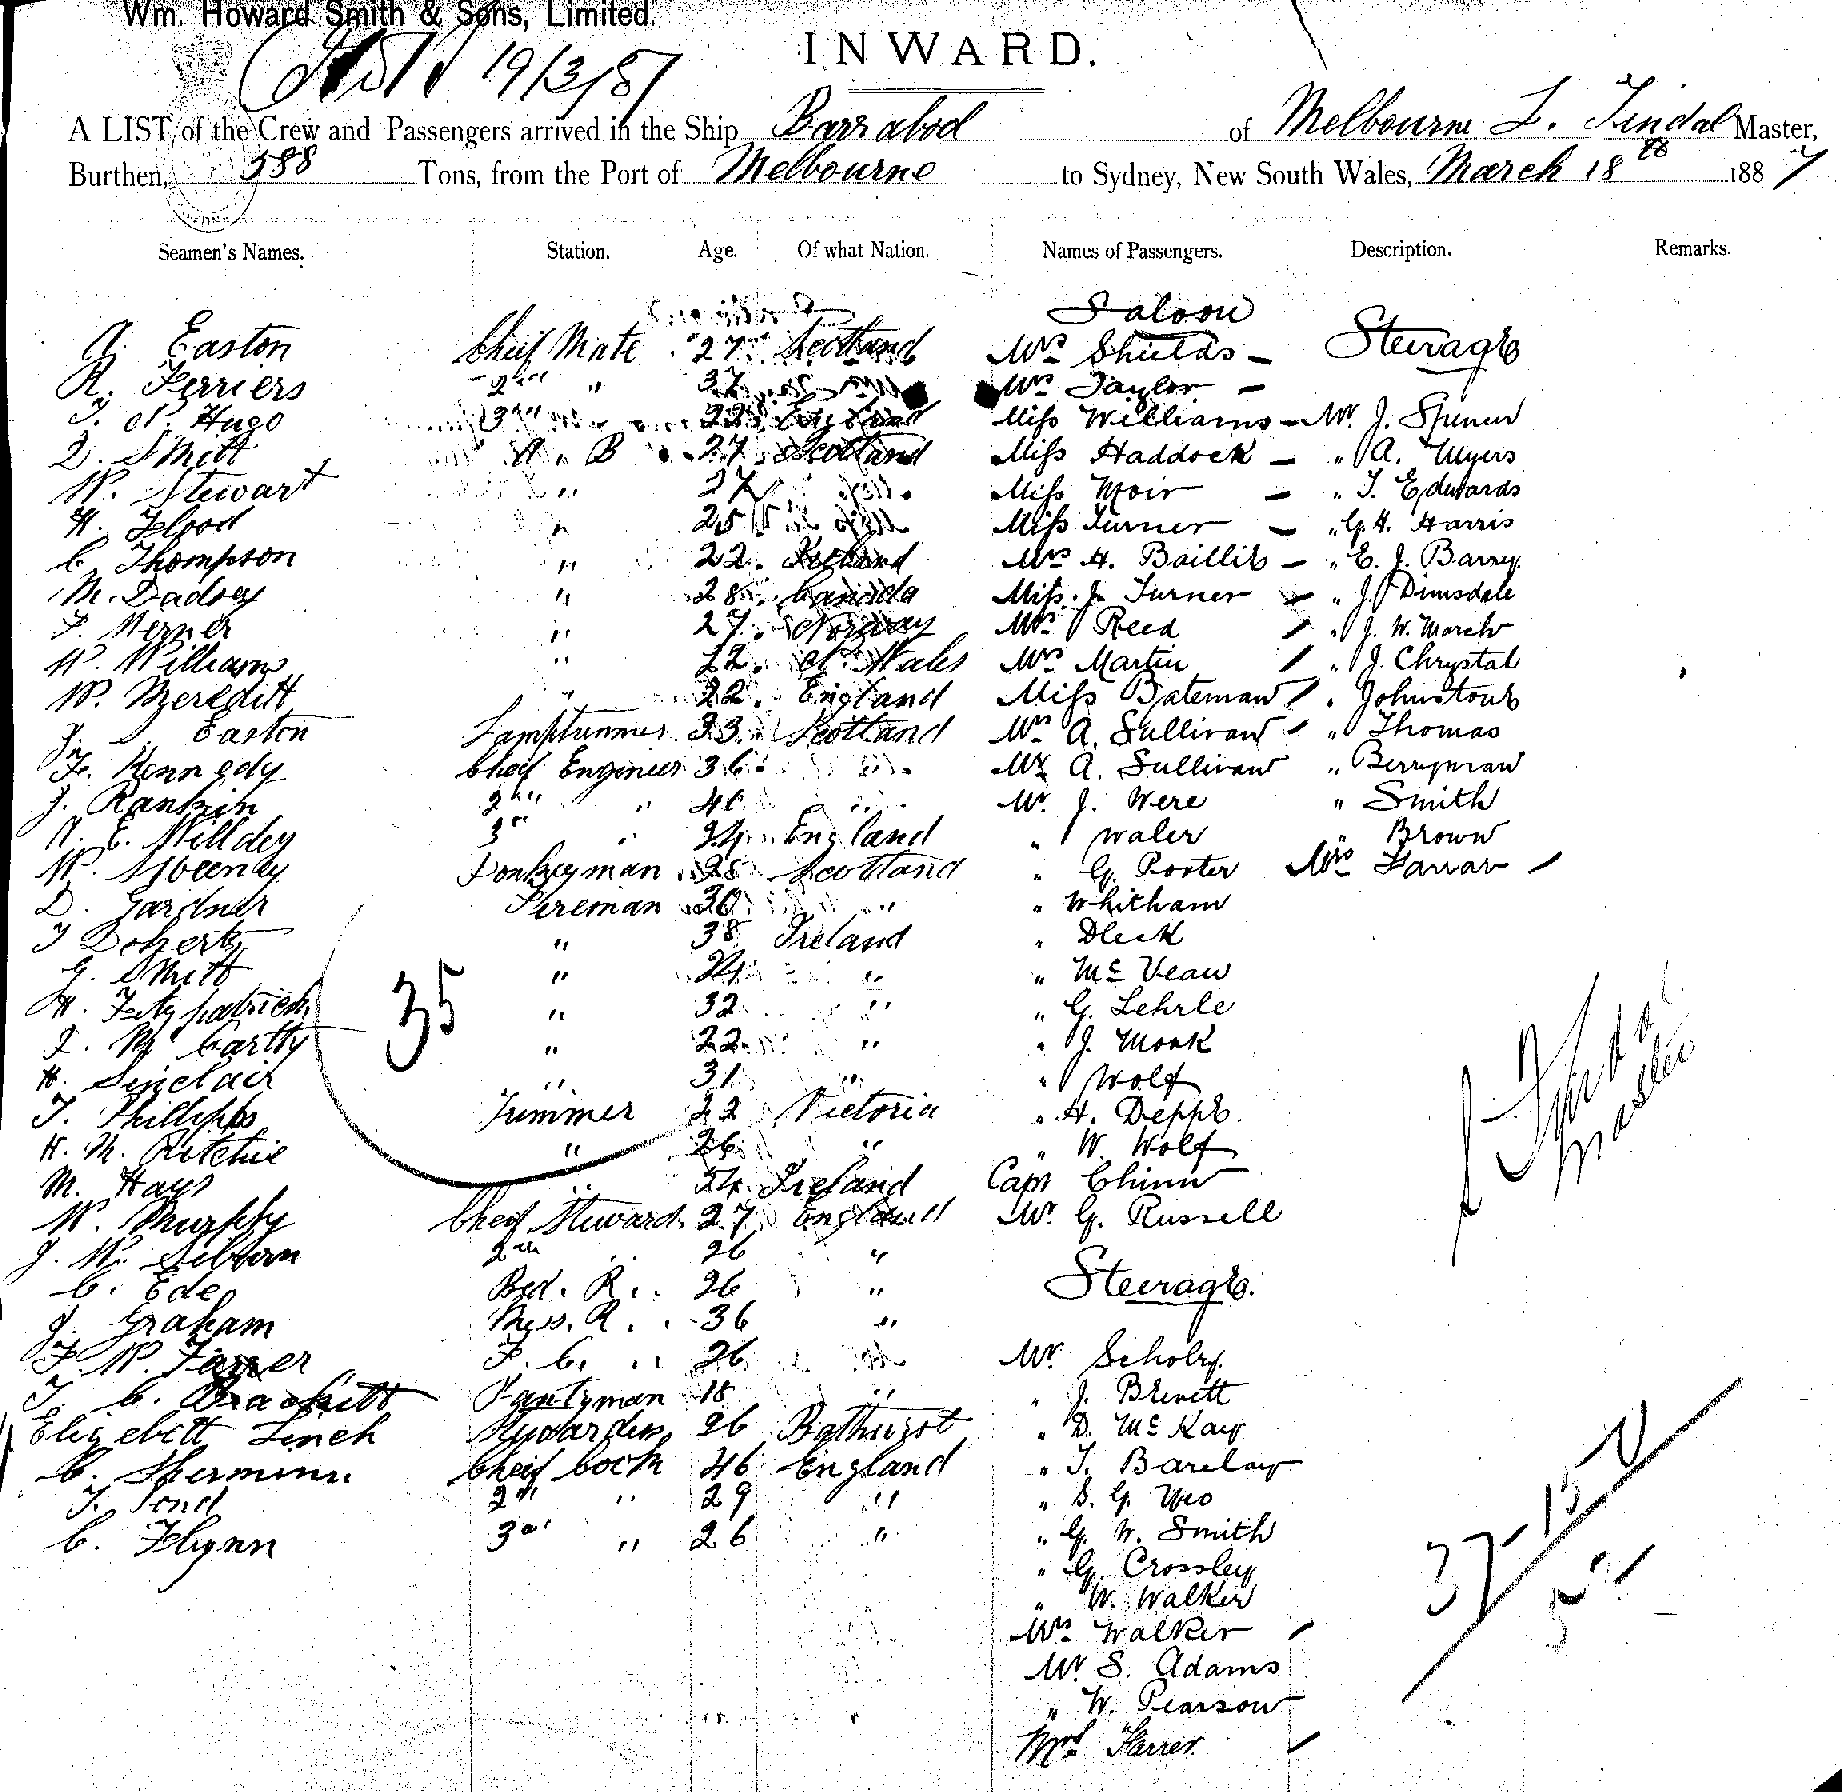 Wm. Howard Smith & Sons, Limited.
19/3/87
INWARD.
A LIST of the Crew and Passengers arrived in the Ship Barrabool of Melbourne Tindal Master,
Burthen, 588 Tons, from the Port of Melbourne to Sydney, New South Wales, March 18th 1887
Seamen's Names. Station. Age. Of what Nation. Names of Passengers. Description. Remarks.
Saloon
Easton Cheif Mate 27 Scotland Mrs Shields - Steerage
R. Ferriers 2nd " 37 Mrs Taylor -
Hugo 3rd 22 England Miss Williams - Mr. J. Spencer
D. Smith A. B 27 Scotland Miss Haddock - " A. Meyers
W. Stewart " 27 Miss Moir - " T. Edwards
H. Flood " 25 Miss Turner - " G. H. Harris
C. Thompson " 22 Mrs H. Baillie - " E. J. Barry
M. Dadsey " 28 Canada Miss J. Turner " J. Dimsdale
F. Werner " 27 Norway Mrs Reed " J. W. March
W. Williams " 22 N. Wales Mrs Martin " J. Chrystal
W. Meredith " 22 England Miss Bateman " Johnstone
J. Easton Lamptrimmer 23 Scotland Mrs A. Sullivan " Thomas
Kennedy Cheif Engineer 36 " Mr A. Sullivan " Berryman
J. Rankin 2nd " 40 " Mr. J. Were " Smith
Willdey 3rd " 24 England " Waler " Brown
W. Sweeney Donkeyman 28 Scotland " G. Porter Mrs Farrar
D. Gardner Fireman 30 " " Whitham
Doherty " 38 Ireland " Dleck
G. Smith " 24 " " McVean
H. Fitzpatrick 35 " 32 " " G. Lehrle
McCartty " 22 " " J. Monk
H. Sinclair " 31 " " Wolf
T. Phillipps Trimmer 22 Victoria " H. Deppe
H. M. Ritchie " 26 " " W. Wolf
M. Hays " 24 Ireland Capt Chinn
W. Murphy Cheif Steward 27 England Mr. G. Russell
J. W. 2nd " 26 "
C. Ede Bed. R. " 26 " Steerage.
J. Graham Mess. R. " 36 "
F. W. F. C. " 26 " Mr Scholey
Pantryman 18 " " J. Brewett
Elizebett Linch Stewardess 26 Bathurst " D. McKay
C. Cheif Cook 46 England " T. Barclay
T. Pond 2nd " 29 " " S. G. Yeo
C. Flynn 3rd " 26 " " G. W. Smith
" G. Crossley
" W. Walker
Mrs Walker
Mr S. Adams
" W. Pearson
Mrs Farrer
Master
37